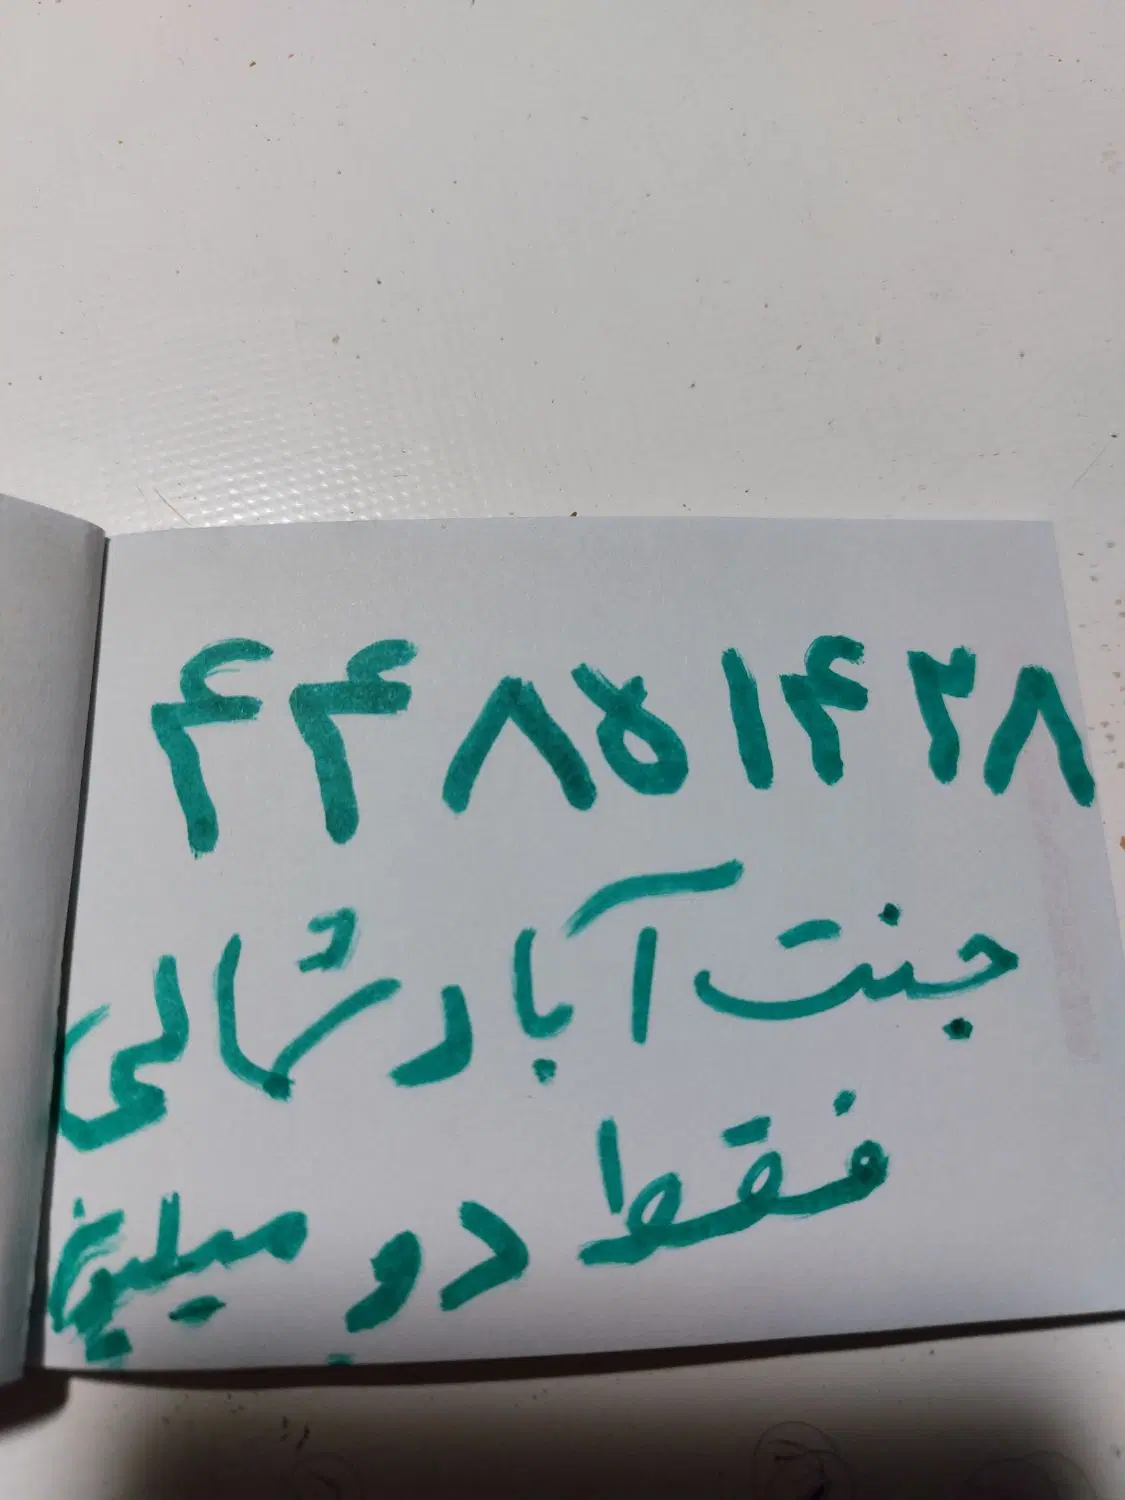 ۴۴۸۵۱۴۲۸
جنت آباد شمالی
فقط دو میلیون